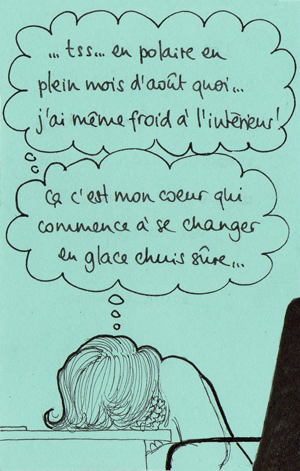 ...tss... en polaire en
plein mois d'août quoi...
j'ai même froid à l'intérieur!
ça c'est mon coeur qui
commence à se changer
en glace chuis sûre...